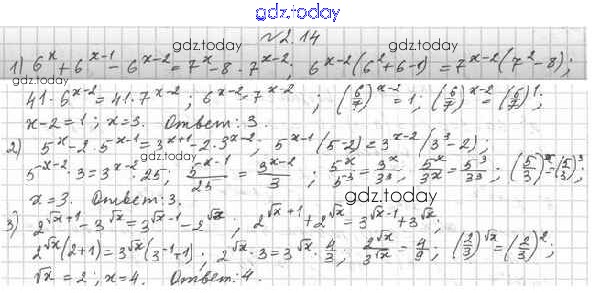 gdz.today
№2.14
gdz.today gdz.today
1) 6^x + 6^{x-1} - 6^{x-2} = 7^x - 8 · 7^{x-2}; 6^{x-2}(6^2+6-1) = 7^{x-2}(7^2-8);
41 · 6^{x-2} = 41 · 7^{x-2}; 6^{x-2} = 7^{x-2}; (6/7)^{x-2} = 1; (6/7)^{x-2} = (6/7)^1;
x-2=1; x=3. Ответ: 3.
gdz.today
2) 5^x - 2 · 5^{x-1} = 3^{x+1} - 2 · 3^{x-2}; 5^{x-1}(5-2) = 3^{x-2}(3^3-2);
5^{x-2} · 3 = 3^{x-2} · 25; 5^{x-1}/25 = 3^{x-2}/3; 5^x/5^3 = 3^x/3^3; 5^x/3^x = 5^3/3^3; (5/3)^x = (5/3)^3;
x=3. Ответ: 3.
gdz.today
3) 2^{√x+1} - 3^{√x} = 3^{√x-1} - 2^{√x}; 2^{√x+1} + 2^{√x} = 3^{√x-1} + 3^{√x};
2^{√x}(2+1) = 3^{√x}(3^{-1}+1); 2^{√x} · 3 = 3^{√x} · 4/3; 2^{√x}/3^{√x} = 4/9; (2/3)^{√x} = (2/3)^2;
√x = 2; x=4. Ответ: 4.
gdz.today